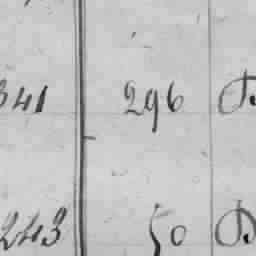 341 296
243 50